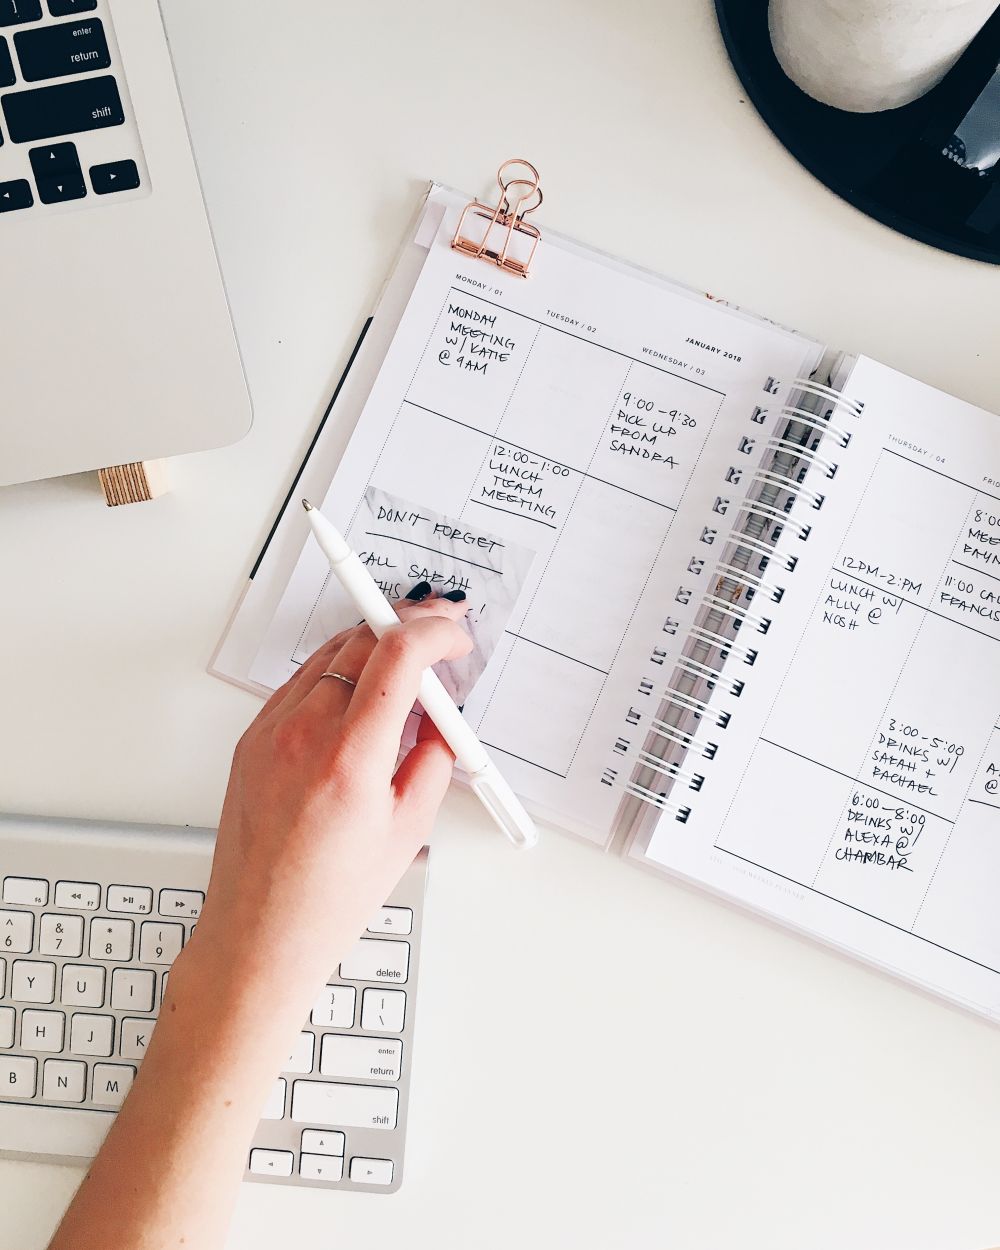 enter
return
shift
MONDAY / 01
MONDAY
MEETING
W/ KATIE
@ 9AM
TUESDAY / 02
12:00-1:00
LUNCH
TEAM
MEETING
JANUARY 2018
WEDNESDAY / 03
9:00-9:30
PICK UP
FROM
SANDRA
DON'T FORGET
CALL SARAH
THIS
!
THURSDAY / 04
12PM-2:PM
LUNCH W/
ALLY @
NOSH
8:00
11:00
3:00-5:00
DRINKS W/
SARAH +
RACHAEL
6:00-8:00
DRINKS W/
ALEXA @
CHAMBAR
@
2018 WEEKLY PLANNER
F6
F7
F8
F9
^
6
&
7
*
8
(
9
delete
Y
U
I
}
]
|
\
H
J
K
enter
return
B
N
M
shift